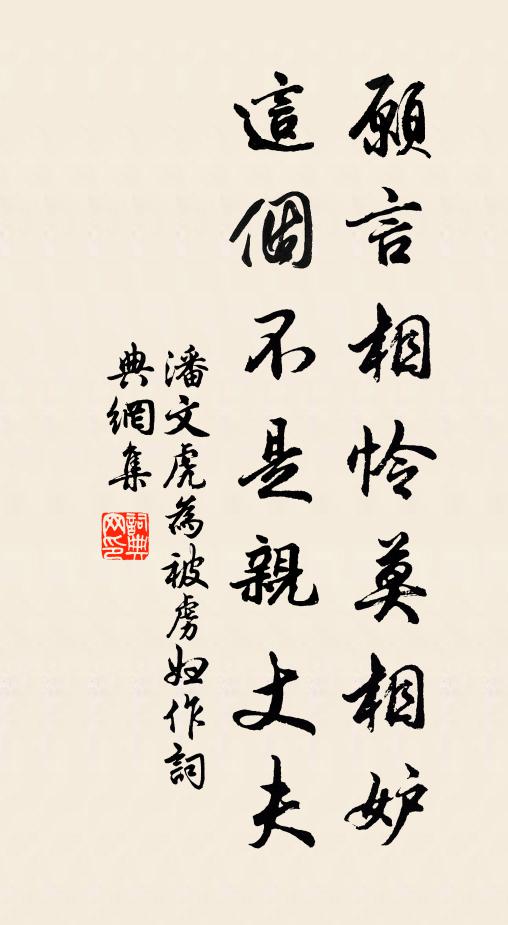 願言相怜莫相妒
這個不是親丈夫
潘文虎為被虜妇作詞
典網集
詞典
网印